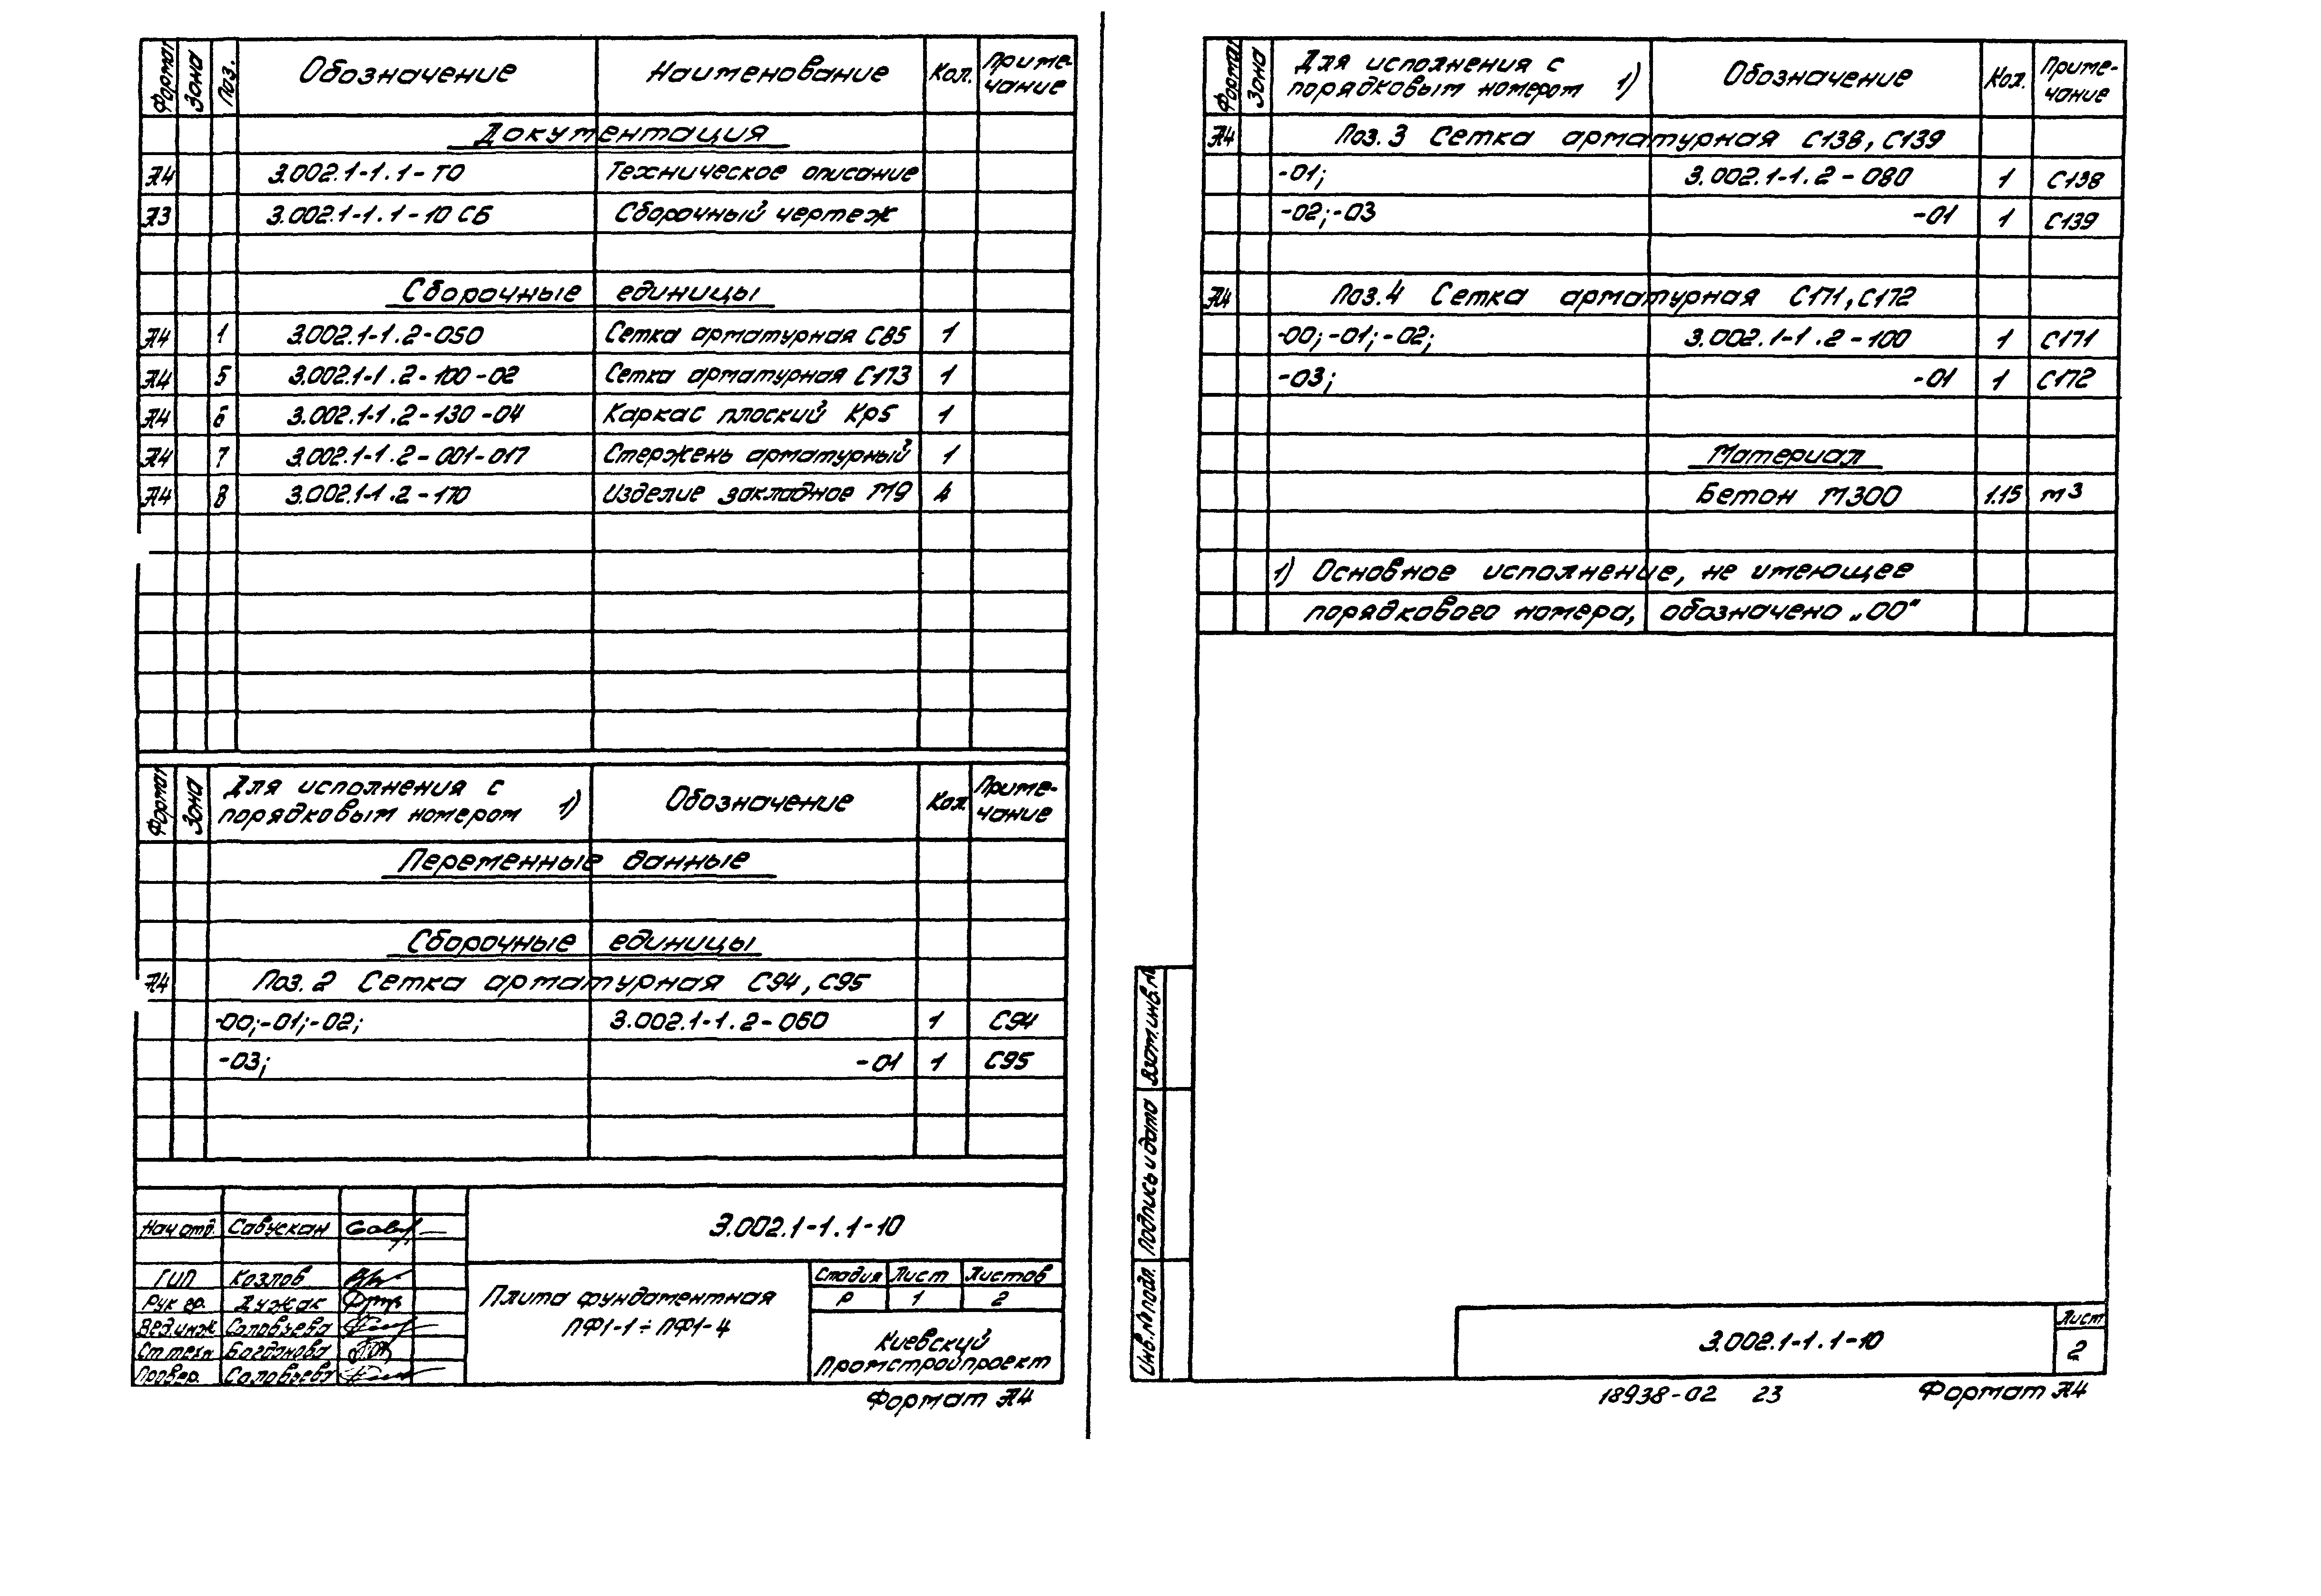 Формат Зона Поз. Обозначение Наименование Кол. Приме-
чание
Документация
А4 3.002.1-1.1-ТО Техническое описание
А3 3.002.1-1.1-10 СБ Сборочный чертеж
Сборочные единицы
А4 1 3.002.1-1.2-050 Сетка арматурная С85 1
А4 5 3.002.1-1.2-100-02 Сетка арматурная С173 1
А4 6 3.002.1-1.2-130-04 Каркас плоский Кр5 1
А4 7 3.002.1-1.2-001-017 Стержень арматурный 1
А4 8 3.002.1-1.2-170 Изделие закладное М9 4
Формат Зона Для исполнения с
порядковым номером 1) Обозначение Кол. Приме-
чание
Переменные данные
Сборочные единицы
А4 Поз. 2 Сетка арматурная С94, С95
-00;-01;-02; 3.002.1-1.2-060 1 С94
-03; -01 1 С95
3.002.1-1.1-10
Нач отд. Савускан
ГИП Козлов
Рук гр. Дужак
Вед.инж Соловьева
Ст техн Богданова
Провер. Соловьева
Плита фундаментная
ПФ1-1÷ПФ1-4
Стадия Лист Листов
Р 1 2
Киевский
Промстройпроект
Формат А4
Формат Зона Для исполнения с
порядковым номером 1) Обозначение Кол. Приме-
чание
А4 Поз. 3 Сетка арматурная С138, С139
-01; 3.002.1-1.2-080 1 С138
-02;-03 -01 1 С139
А4 Поз. 4 Сетка арматурная С171, С172
-00;-01;-02; 3.002.1-1.2-100 1 С171
-03; -01 1 С172
Материал
Бетон М300 1.15 м3
1) Основное исполнение, не имеющее
порядкового номера, обозначено „00“
Взам.инв.№
Подпись и дата
Инв.№ подл.
3.002.1-1.1-10
Лист
2
18938-02 23 Формат А4